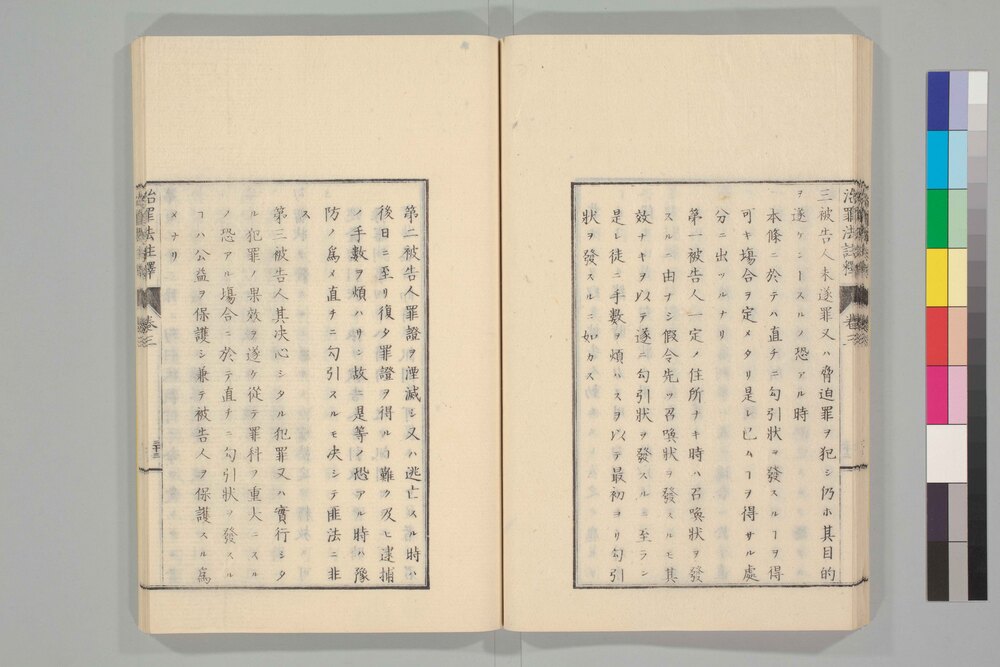 治罪法註釋 卷三
三被告人未遂罪又ハ脅迫罪ヲ犯シ仍ホ其目的
ヲ遂ケントスルノ恐アル時
本條ニ於テハ直チニ勾引狀ヲ發スルヿヲ得
可キ塲合ヲ定メタリ是レ已ムヿヲ得サル處
分ニ出ツルナリ
第一被告人一定ノ住所ナキ時ハ召喚狀ヲ發
スルニ由ナシ假令先ツ召喚狀ヲ發スルモ其
效ナキヲ以テ遂ニ勾引狀ヲ發スルニ至ラン
是レ徒ニ手數ヲ煩ハスヲ以テ最初ヨリ勾引
狀ヲ發スルニ如カス
第二被告人罪證ヲ湮滅シ又ハ逃亡スル時ハ
後日ニ至リ復タ罪證ヲ得ルノ難ク及ヒ逮捕
ノ手數ヲ煩ハサン故ニ是等ノ恐アル時ハ豫
防ノ爲メ直チニ勾引スルモ决シテ匪法ニ非
ス
第三被告人其决心シタル犯罪又ハ實行シタ
ル犯罪ノ果效ヲ遂ケ從テ罪科ヲ重大ニスル
ノ恐アル塲合ニ於テ直チニ勾引狀ヲ發スル
ヿハ公益ヲ保護シ兼テ被告人ヲ保護スル爲
メナリ
治罪法註釋 卷三